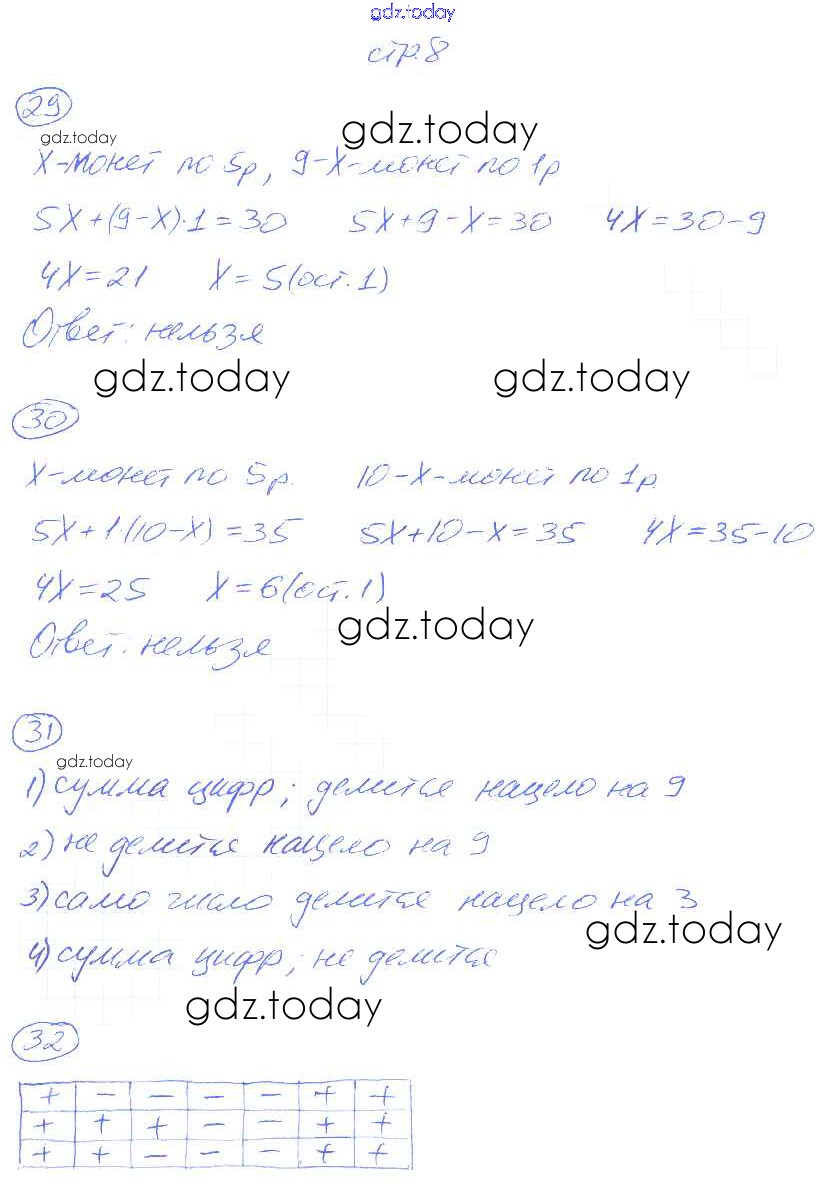 gdz.today
стр. 8
29
gdz.today
gdz.today
X-монет по 5р, 9-X-монет по 1р
5X+(9-X)·1=30 5X+9-X=30 4X=30-9
4X=21 X=5(ост.1)
Ответ: нельзя
gdz.today gdz.today
30
X-монет по 5р. 10-X-монет по 1р
5X+1·(10-X)=35 5X+10-X=35 4X=35-10
4X=25 X=6(ост.1)
gdz.today
Ответ: нельзя
31
gdz.today
1) сумма цифр; делится нацело на 9
2) не делится нацело на 9
3) само число делится нацело на 3
gdz.today
4) сумма цифр; не делится
gdz.today
32
+ − − − − + +
+ + + − − + +
+ + − − − + +